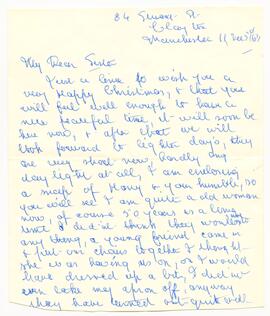 84 Stuart St
Clayton
Manchester 11 Dec
My Dear
Just a line to wish you a
very Happy Christmas, & that you
will feel well enough to have a
nice peaceful time, it will soon be
here now, & after that we will
look forward to lighter days, they
are very short now, hardly any
day light at all, I am enclosing
a snap of Harry & your humble, so
you will see I am quite a old woman
now, of course 50 years is a long
I didn't think they wouldn't
any thing, a young friend came in
& put our chairs together & I thought
she was having us on, or I would
have dressed up a bit, I didn't
even take my apron off, anyway
they have turned out quite well